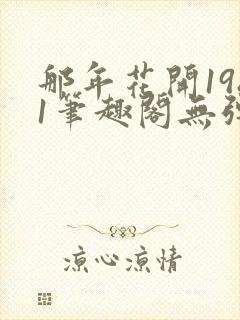 那年花開19
1筆趣閣無
涼心涼情